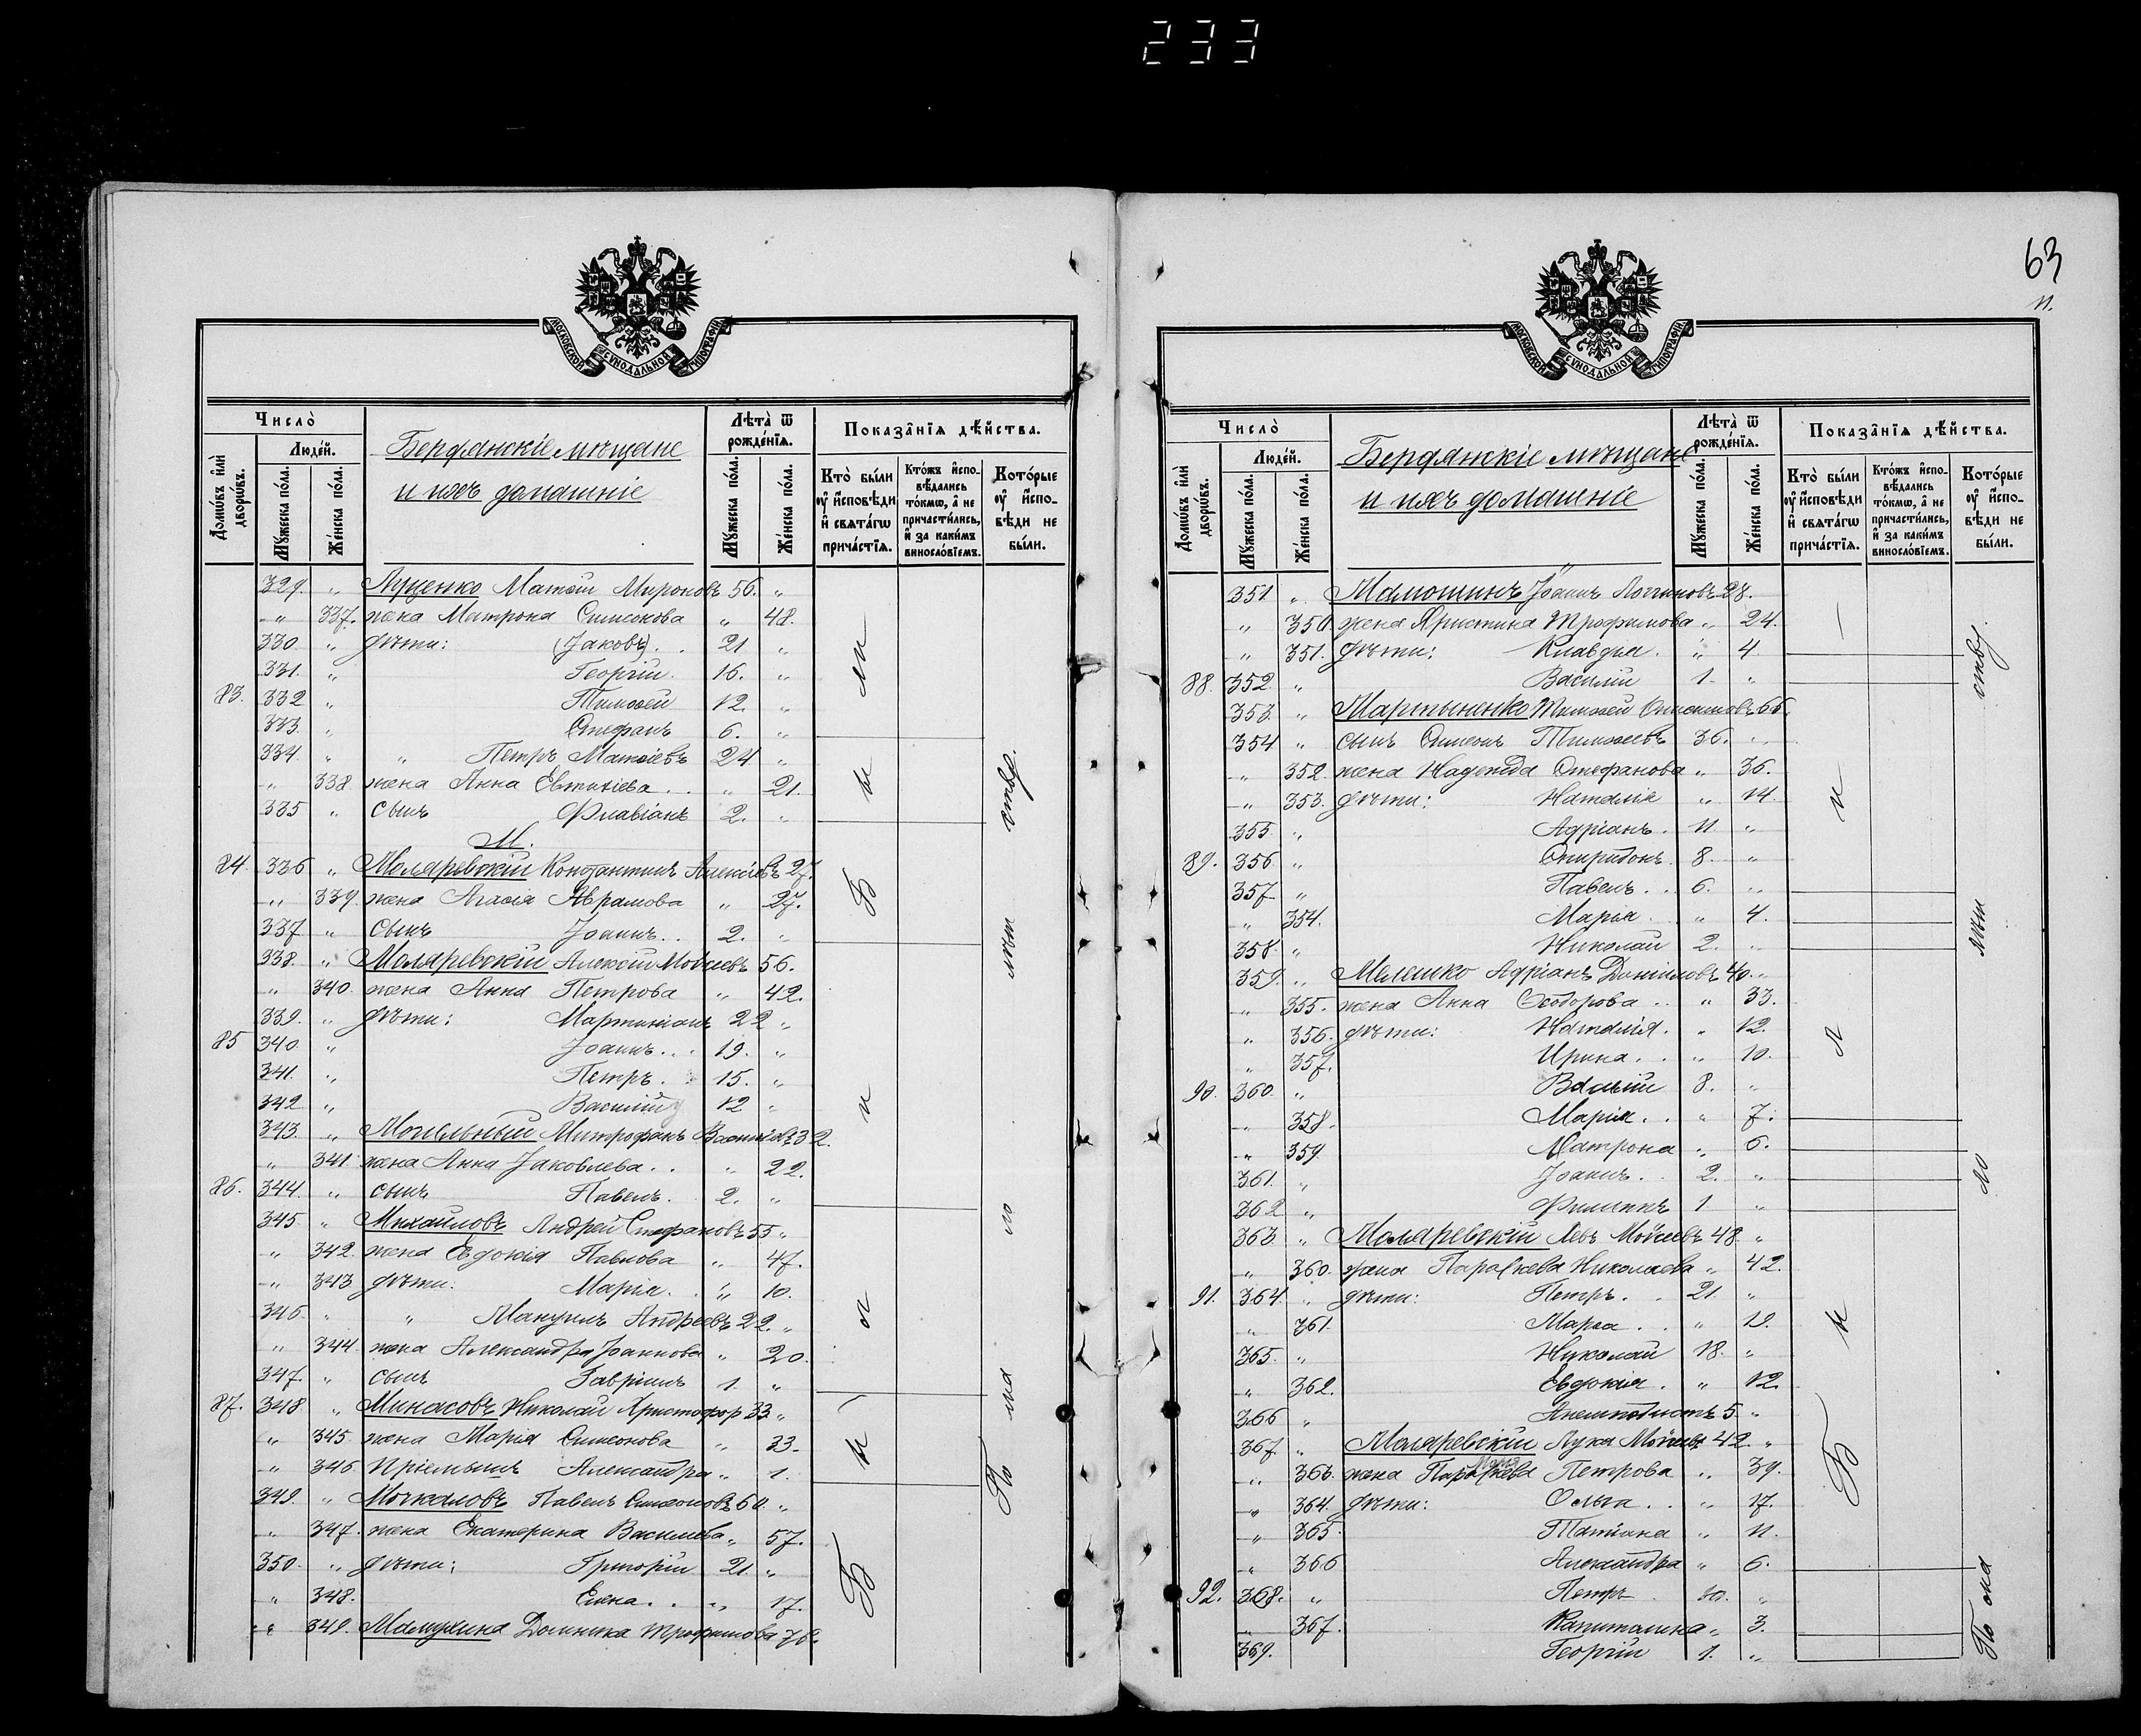 233
МОСКОВСКОЙ СѴНОДАЛЬНОЙ ТИПОГРАФІИ
Число̀
Люде́й.
Домѡ́въ и҆лѝ дворѡ́въ.
Мꙋ́жеска по́ла.
Же́нска по́ла.
Бердянскіе мѣщане
и ихъ домашніе
Лѣта̀ ѿ рожде́нїѧ.
Мꙋ́жеска по́ла.
Же́нска по́ла.
Показа̑нїѧ дѣ́йства.
Кто̀ бы́ли ᲂу҆ и҆сповѣ́ди и҆ свѧта́гѡ прича́стїѧ.
Кто́жъ и҆сповѣ́дались то́кмѡ, а҆ не причасти́лись, и҆ за каки́мъ винословїемъ.
Кото́рые ᲂу҆ и҆сповѣ́ди не бы́ли.
329. „ Луценко Матѳій Мироновъ 56. „
„ 337. жена Матрона Симеонова „ 48.
330. „ дѣти: Іаковъ . . 21 „
331. „ Георгій. 16. „
83. 332 „ Тимоѳей 12. „
333. „ Стефанъ 6. „
334. „ „ Петръ Матѳіевъ 24 „
„ 338. жена Анна Евтихіева . . „ 21.
335 „ сынъ Флавіанъ 2. „
М.
84. 336 „ Моляревскій Константинъ Алексіевъ 27.
„ 339. жена Агаѳія Аврамова „ 27.
337 „ сынъ Іоаннъ. . 2. „
338. „ Моляревскій Алексій Моѵсеевъ 56.
„ 340. жена Анна Петрова „ 42.
339. „ дѣти: Мартиніанъ 22 „
85 340. „ Іоаннъ. . . 19. „
341. „ Петръ. . 15. „
342 „ Василій 12 „
343. „ Могильный Митрофанъ 32.
„ 341 жена Анна Іаковлева. . „ 22.
86. 344. „ сынъ Павелъ. 2. „
345. „ Михайловъ Андрей Стефановъ 55 „
„ 342. жена Евдокія Павлова „ 47.
„ 343 дѣти: Марія. . „ 10.
346. „ „ Мануилъ Андреевъ 22. „
„ 344. жена Александра Іоаннова „ 20.
347. „ сынъ Гавріилъ 1. „
87. 348 „ Минасовъ Николай Христофор 33. „
„ 345. жена Марія Симеонова „ 33.
„ 346. Пріемышъ Александра „ 1.
349. „ Мочкаловъ Павелъ Симеоновъ 60. „
„ 347. жена Екатерина Васильева „ 57.
350. „ дѣти: Григорій 21. „
„ 348. Елена. . „ 17.
„ 349. Мамухина Домника Трофимова 76.
Б ы л и
По мал лѣт ству.
63
МОСКОВСКОЙ СѴНОДАЛЬНОЙ ТИПОГРАФІИ
Число̀
Люде́й.
Домѡ́въ и҆лѝ дворѡ́въ.
Мꙋ́жеска по́ла.
Же́нска по́ла.
Бердянскіе мѣщане
и ихъ домашніе
Лѣта̀ ѿ рожде́нїѧ.
Мꙋ́жеска по́ла.
Же́нска по́ла.
Показа̑нїѧ дѣ́йства.
Кто̀ бы́ли ᲂу҆ и҆сповѣ́ди и҆ свѧта́гѡ прича́стїѧ.
Кто́жъ и҆сповѣ́дались то́кмѡ, а҆ не причасти́лись, и҆ за каки́мъ винословїемъ.
Кото́рые ᲂу҆ и҆сповѣ́ди не бы́ли.
351 „ Мамошинъ Іоаннъ Логгиновъ 28.
„ 350 жена Христина Трофимова „ 24.
„ 351. дѣти: Клавдія. „ 4
88. 352. „ Василій 1. „
353. „ Мартыненко Тимоѳей 66.
354 „ сынъ Симеонъ Тимоѳеевъ 36. „
„ 352. жена Надежда Стефанова „ 36.
„ 353. дѣти: Наталія „ 14.
355. „ Адріанъ. 11 „
89. 356 „ Спиридонъ. 8. „
357 „ Павелъ. . 6. „
„ 354. Марія . „ 4.
358. „ Николай 2. „
359. „ Мелешко Адріанъ Даниловъ 40. „
„ 355. жена Анна Ѳеодорова . . „ 33.
„ 356. дѣти: Наталія. „ 12.
„ 357. Ирина. . „ 10.
90. 360. „ Василій 8. „
„ 358. Марія. . „ 7.
„ 359. Матрона „ 6.
361. „ Іоаннъ. . 2. „
362 „ Филиппъ 1 „
363. „ Моляревскій Левъ Моѵсеевъ 48 „
„ 360. жена Параскева Николаева „ 42.
91. 364. „ дѣти: Петръ. . 21. „
„ 361. Марѳа . . „ 19.
365. „ Николай 18. „
„ 362. Евдокія. „ 12.
366 „ Анемподистъ 5. „
367. „ Моляревскій Лука Моѵсеевъ 42. „
„ 363. жена Параскева Петрова „ 39.
„ 364. дѣти: Ольга. . „ 17.
„ 365. Татіана „ 11.
„ 366 Александра „ 6.
92. 368. „ Петръ 10. „
„ 367. Капитолина „ 3.
369. Георгій 1. „
Б ы л и
По мало лѣт ству